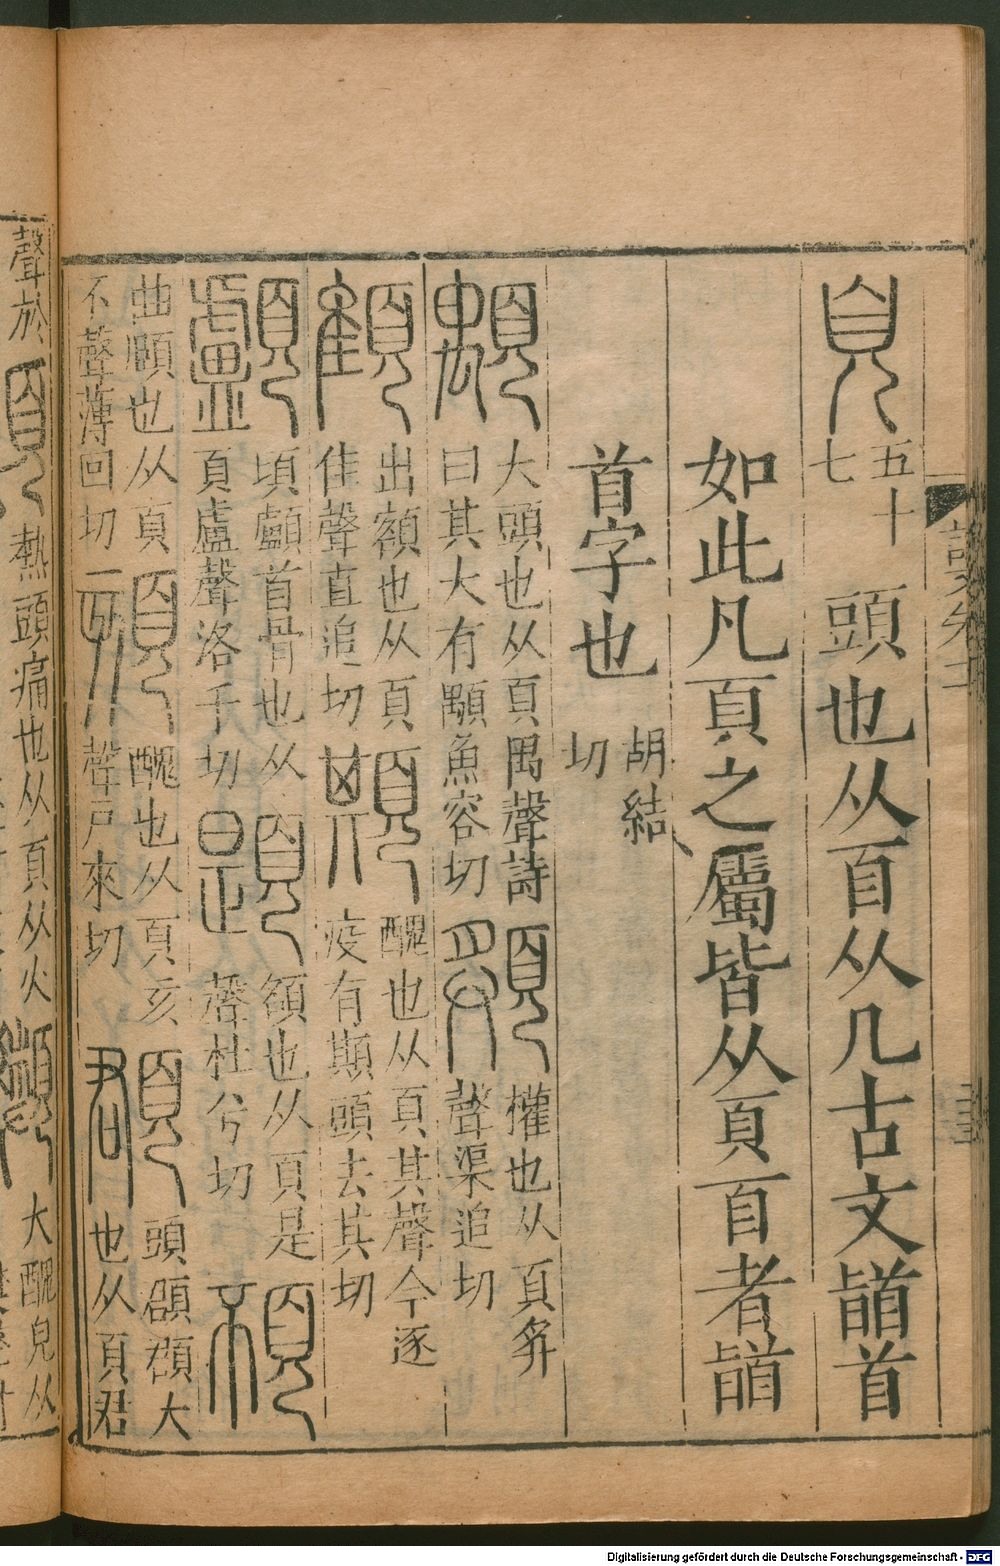 頁五十七 頭也从𦣻从几古文䭫首
如此凡頁之屬皆从頁𦣻者䭫
首字也胡結切
顒大頭也从頁禺聲詩曰其大有顒魚容切 權也从頁 聲渠追切
顀出額也从頁隹聲直追切 䫏醜也从頁其聲今逐疫有䫏頭去其切
顱頊顱首骨也从頁盧聲洛乎切 題額也从頁是聲杜兮切 䫌
曲頤也从頁不聲薄回切一 頦醜也从頁亥聲戶來切 頵頭頵頵大也从頁君
聲於 煩熱頭痛也从頁从火 大醜皃从
Digitalisierung gefördert durch die Deutsche Forschungsgemeinschaft - DFG